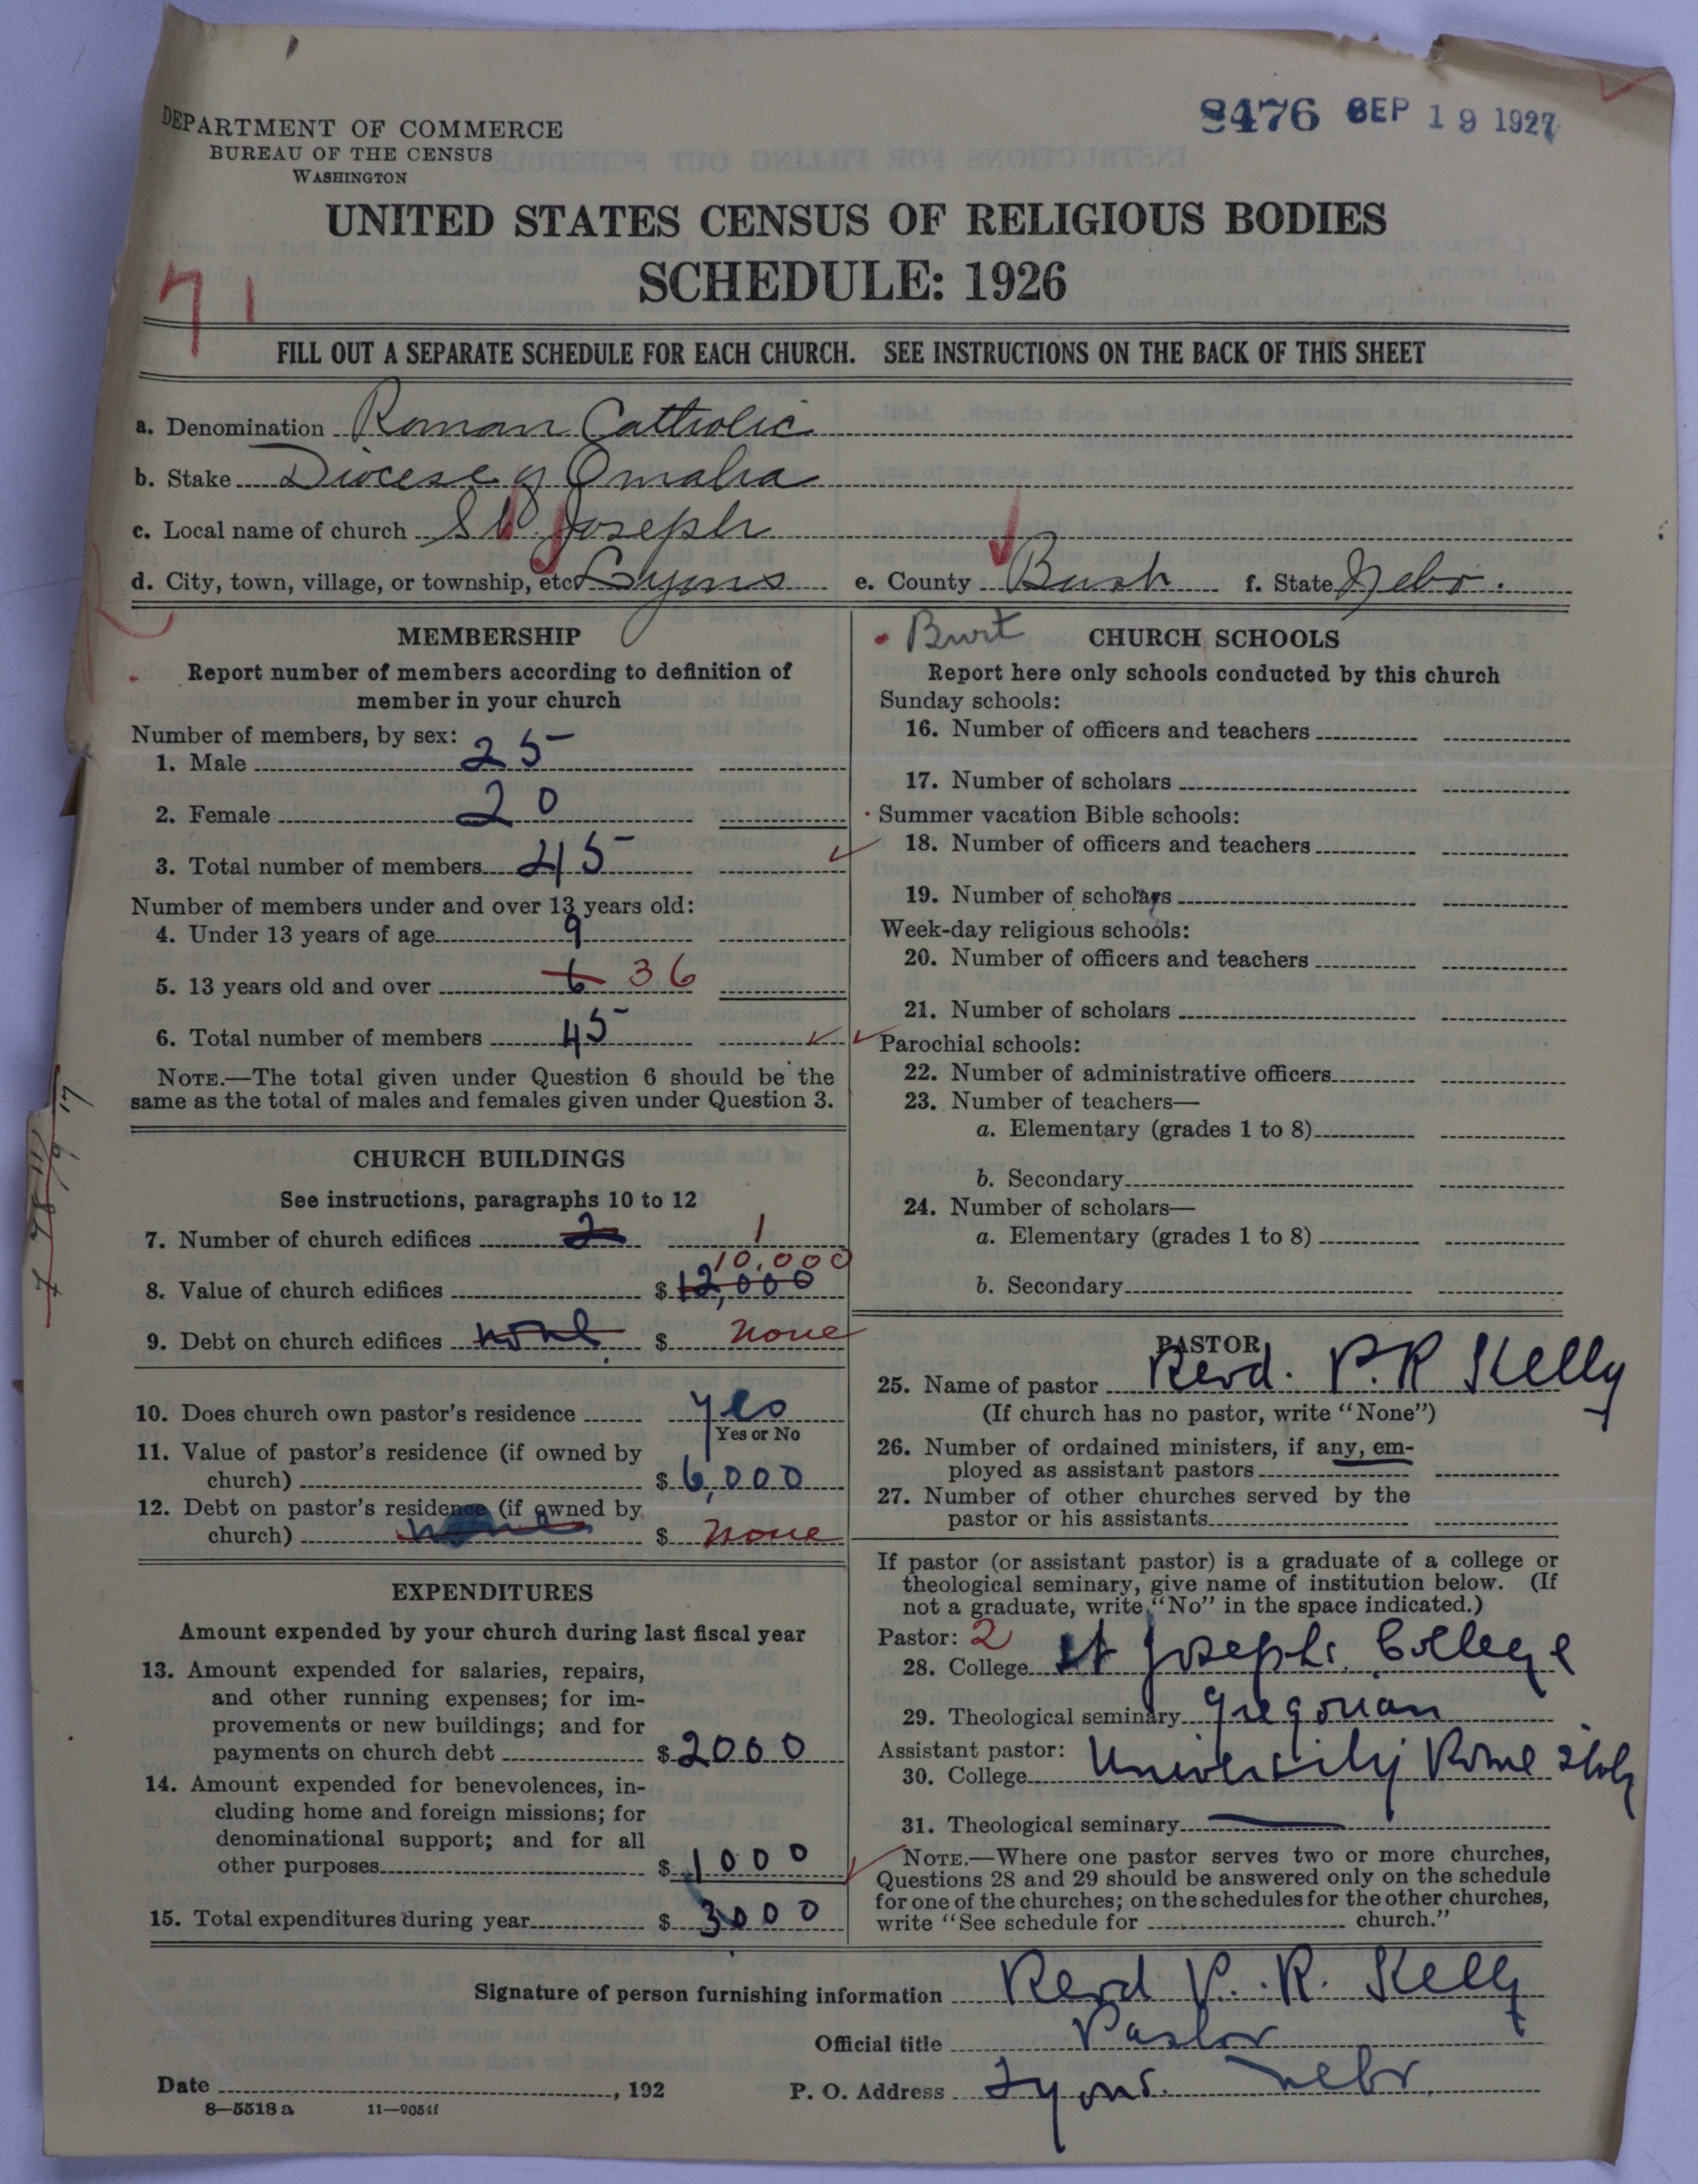 8476 SEP 19 1927
DEPARTMENT OF COMMERCE
BUREAU OF THE CENSUS
WASHINGTON
UNITED STATES CENSUS OF RELIGIOUS BODIES
SCHEDULE: 1926
71
FILL OUT A SEPARATE SCHEDULE FOR EACH CHURCH. SEE INSTRUCTIONS ON THE BACK OF THIS SHEET
a. Denomination Roman Catholic
b. Stake Diocese of Omaha
c. Local name of church St Joseph
d. City, town, village, or township, etc. Lyons e. County Bush f. State Nebr.
Burt
MEMBERSHIP
Report number of members according to definition of
member in your church
Number of members, by sex:
1. Male 25
2. Female 20
3. Total number of members 45
Number of members under and over 13 years old:
4. Under 13 years of age 9
5. 13 years old and over 6 36
6. Total number of members 45
NOTE.—The total given under Question 6 should be the
same as the total of males and females given under Question 3.
CHURCH BUILDINGS
See instructions, paragraphs 10 to 12
7. Number of church edifices 2 1
10,000
8. Value of church edifices $ 12,000
9. Debt on church edifices none $ none
10. Does church own pastor's residence yes
Yes or No
11. Value of pastor's residence (if owned by
church) $ 6,000
12. Debt on pastor's residence (if owned by
church) none $ none
EXPENDITURES
Amount expended by your church during last fiscal year
13. Amount expended for salaries, repairs,
and other running expenses; for im-
provements or new buildings; and for
payments on church debt $ 2000
14. Amount expended for benevolences, in-
cluding home and foreign missions; for
denominational support; and for all
other purposes $ 1000
15. Total expenditures during year $ 3000
CHURCH SCHOOLS
Report here only schools conducted by this church
Sunday schools:
16. Number of officers and teachers
17. Number of scholars
Summer vacation Bible schools:
18. Number of officers and teachers
19. Number of scholars
Week-day religious schools:
20. Number of officers and teachers
21. Number of scholars
Parochial schools:
22. Number of administrative officers
23. Number of teachers—
a. Elementary (grades 1 to 8)
b. Secondary
24. Number of scholars—
a. Elementary (grades 1 to 8)
b. Secondary
PASTOR
25. Name of pastor Revd. P. R Kelly
(If church has no pastor, write "None")
26. Number of ordained ministers, if any, em-
ployed as assistant pastors
27. Number of other churches served by the
pastor or his assistants
If pastor (or assistant pastor) is a graduate of a college or
theological seminary, give name of institution below. (If
not a graduate, write "No" in the space indicated.)
Pastor: 2
28. College St Josephs College
29. Theological seminary Gregorian
Assistant pastor:
30. College University Rome Italy
31. Theological seminary
NOTE.—Where one pastor serves two or more churches,
Questions 28 and 29 should be answered only on the schedule
for one of the churches; on the schedules for the other churches,
write "See schedule for church."
Signature of person furnishing information Revd P. R. Kelly
Official title Pastor
Date , 192 P. O. Address Lyons. Nebr.
8—5518a 11—9051f